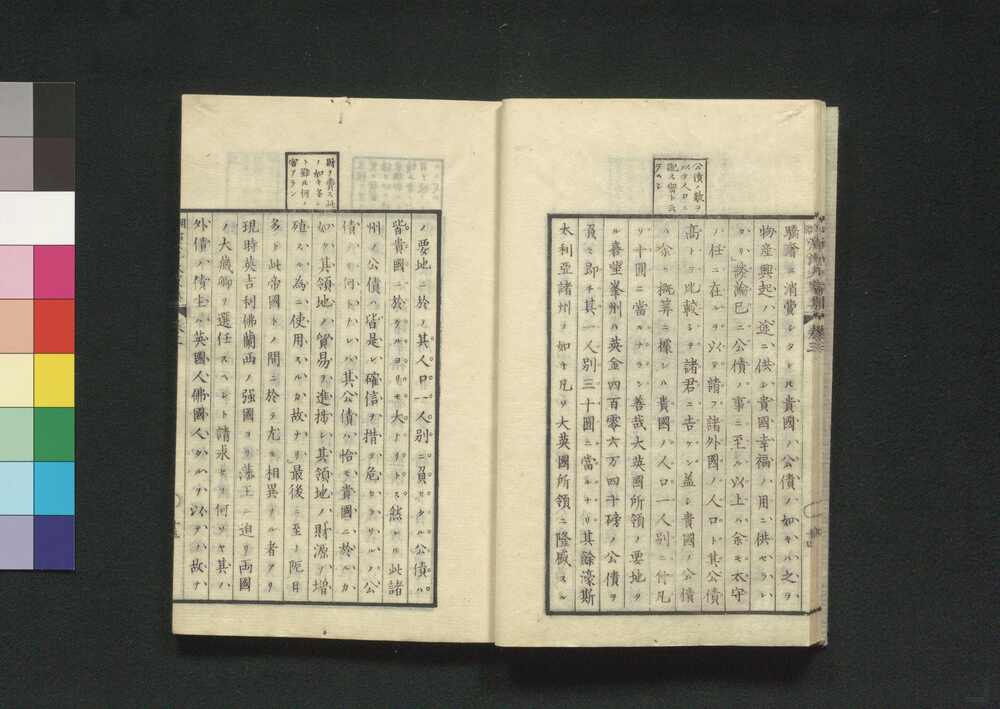 公債ノ数ヲ
以テ人口ニ
驕奢ニ消費シタトル貴國ノ公債ノ如キハ之ヲ
物産興起ノ途ニ供シ貴國幸福ノ用ニ供セラレ
議論已ニ公債ノ事ニ至ル以上ハ余モ太守
ノ任ニ在ルヲ以テ請フ諸外國ノ人口ト其公債
高トヲ比較シテ諸君ニ告ケン蓋シ貴國ノ公債
ハ余カ概算ニ據レハ貴國ノ人口一人別ニ付凡
リ十圓ニ當ルナラン善哉大英國所領ノ要地タ
ル喜望峯州ハ英金四百零六万四千磅ノ公債ヲ
負ヒ即チ其一人別三十圓ニ當ルナリ其餘濠斯
太利亞諸州ノ如キ凡ソ大英國所領ニ隆盛スル
財ヲ費ス此
ノ如キ
ト雖ル何ノ
害アラン
ノ要地ニ於テ其人口一人別ニ負ヒタル公債ハ
皆貴國ニ於ケルヨリモ大ナリトス然トモ此諸
州ノ公債ハ皆是レ確信ヲ措キ危セラレルノ公
債ナリ何トナレハ其公債ハ恰モ貴國ニ於ルカ
如ク其領地ノ貿易ヲ進捗シ其領地ノ財源ヲ増
殖スル為ニ使用スルカ故ナリ最後ニ至リ阨日
多ト此帝國トノ間ニ於テ尤モ相異ナル者アリ
現時英吉利佛蘭西ノ強國ヨリ藩王ニ迫リ両國
ノ大藏卿ヲ選任スヘシト請求セリ何ソヤ其ハ
外債ノ債主ハ英國人佛國人ナルヲ以テノ故ナ